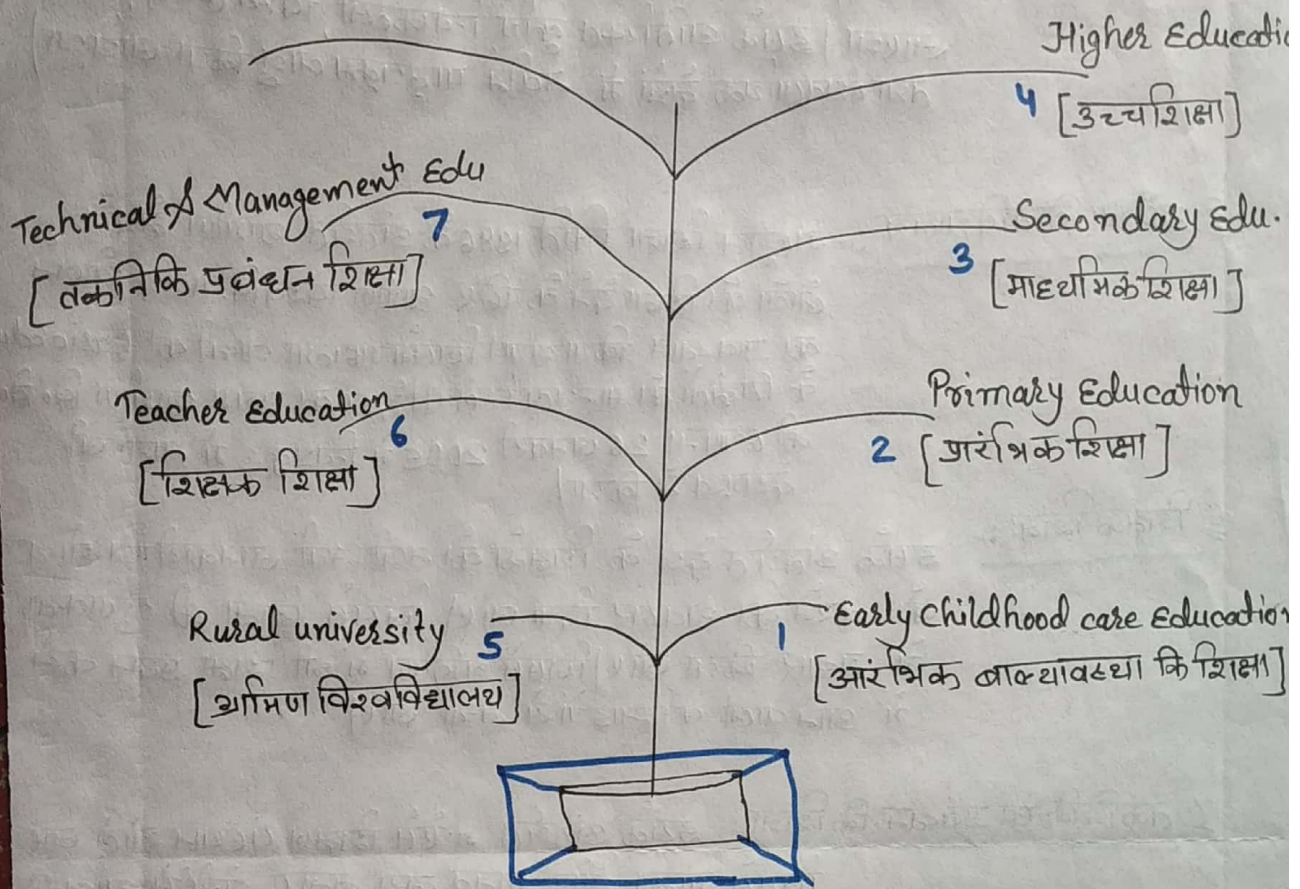 Higher Educatio
4 [उच्च शिक्षा]
Technical & Management Edu
7
[तकनिकि प्रबंधन शिक्षा]
Secondary Edu.
3 [माध्यमिक शिक्षा]
Teacher Education
6
[शिक्षक शिक्षा]
Primary Education
2 [प्रारंभिक शिक्षा]
Rural university 5
[ग्रामिण विश्वविद्यालय]
1 Early Childhood care Education
[आरंभिक बाल्यावस्था कि शिक्षा]